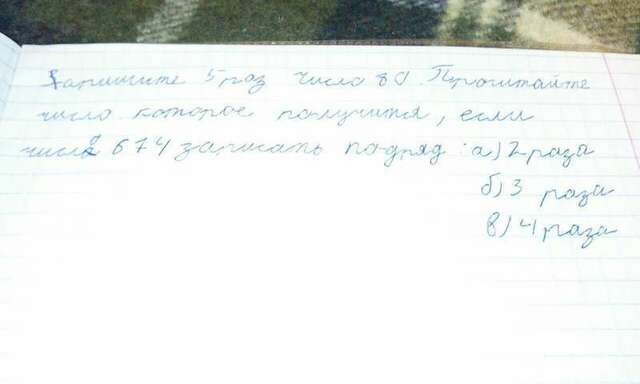 Запишите 5 раз число 80. Прочитайте
число которое получится, если
число 674 записать подряд: а) 2 раза
б) 3 раза
в) 4 раза